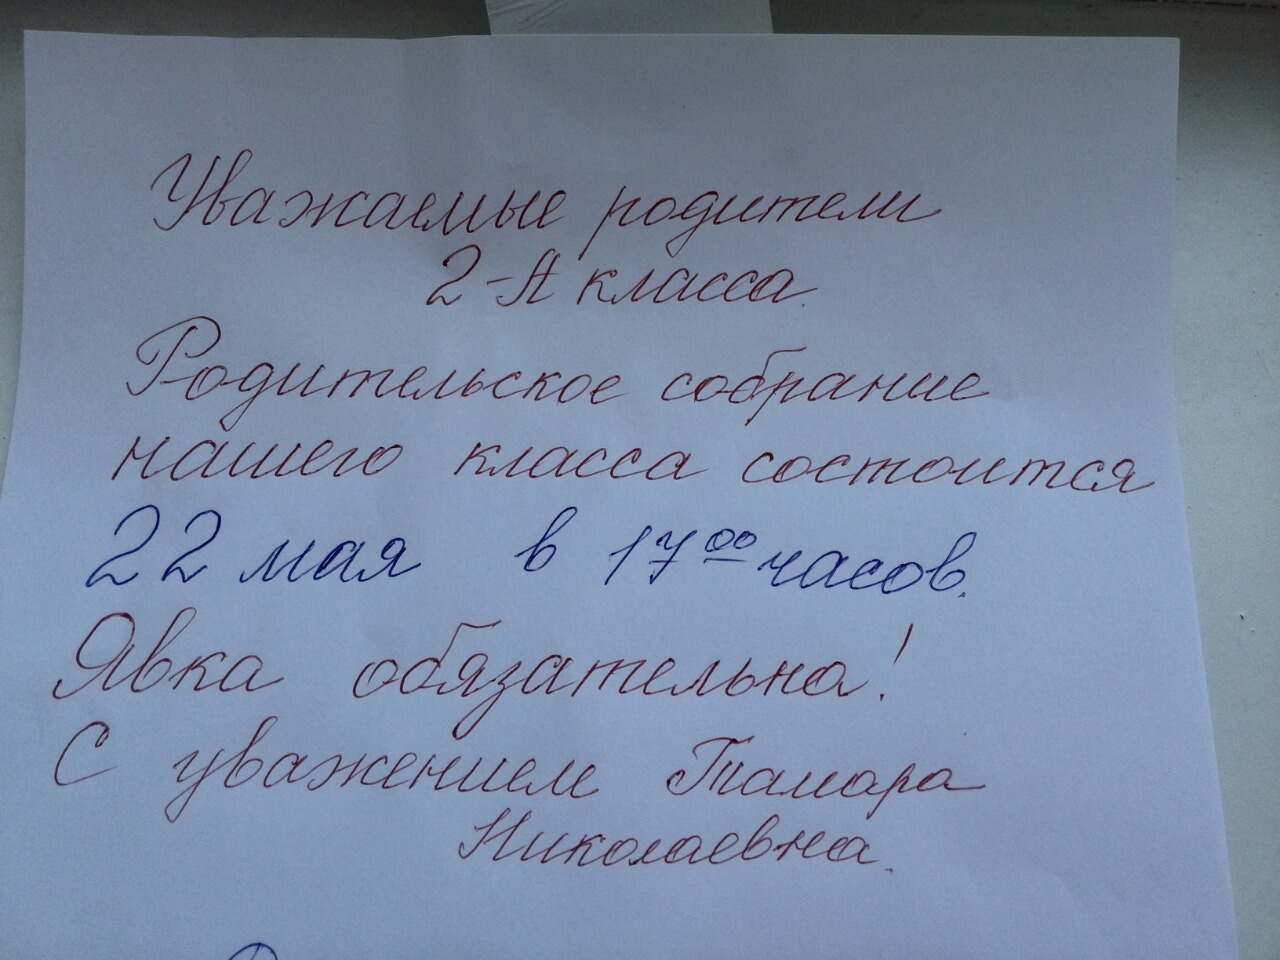 Уважаемые родители
2-А класса.
Родительское собрание
нашего класса состоится
22 мая в 17⁰⁰ часов.
Явка обязательна!
С уважением Тамара
Николаевна.